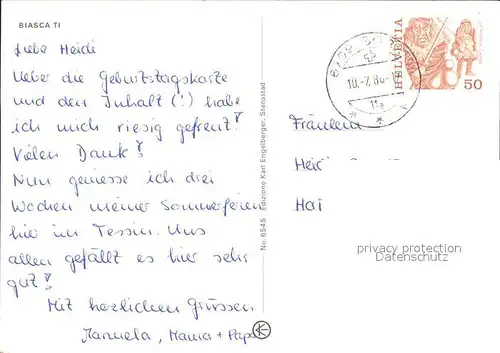 BIASCA TI
Liebe Heidi
Ueber die Geburtstagskarte
und den Inhalt (!) habe
ich mich riesig gefreut!
Vielen Dank!
Nun geniesse ich drei
Wochen meiner Sommerferien
hier im Tessin. Uns
allen gefällt es hier sehr
gut!
Mit herzlichen Grüssen
Manuela, Mama + Papa
No. 6545 Edizione Karl Engelberger, Stansstad
10.-7.86
HELVETIA
50
Fräulein
Heidi
privacy protection
Datenschutz